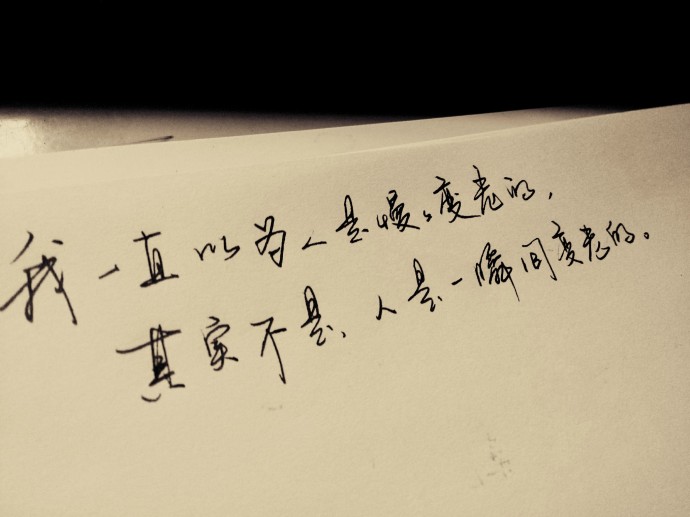 我一直以为人是慢慢变老的，
其实不是，人是一瞬间变老的。